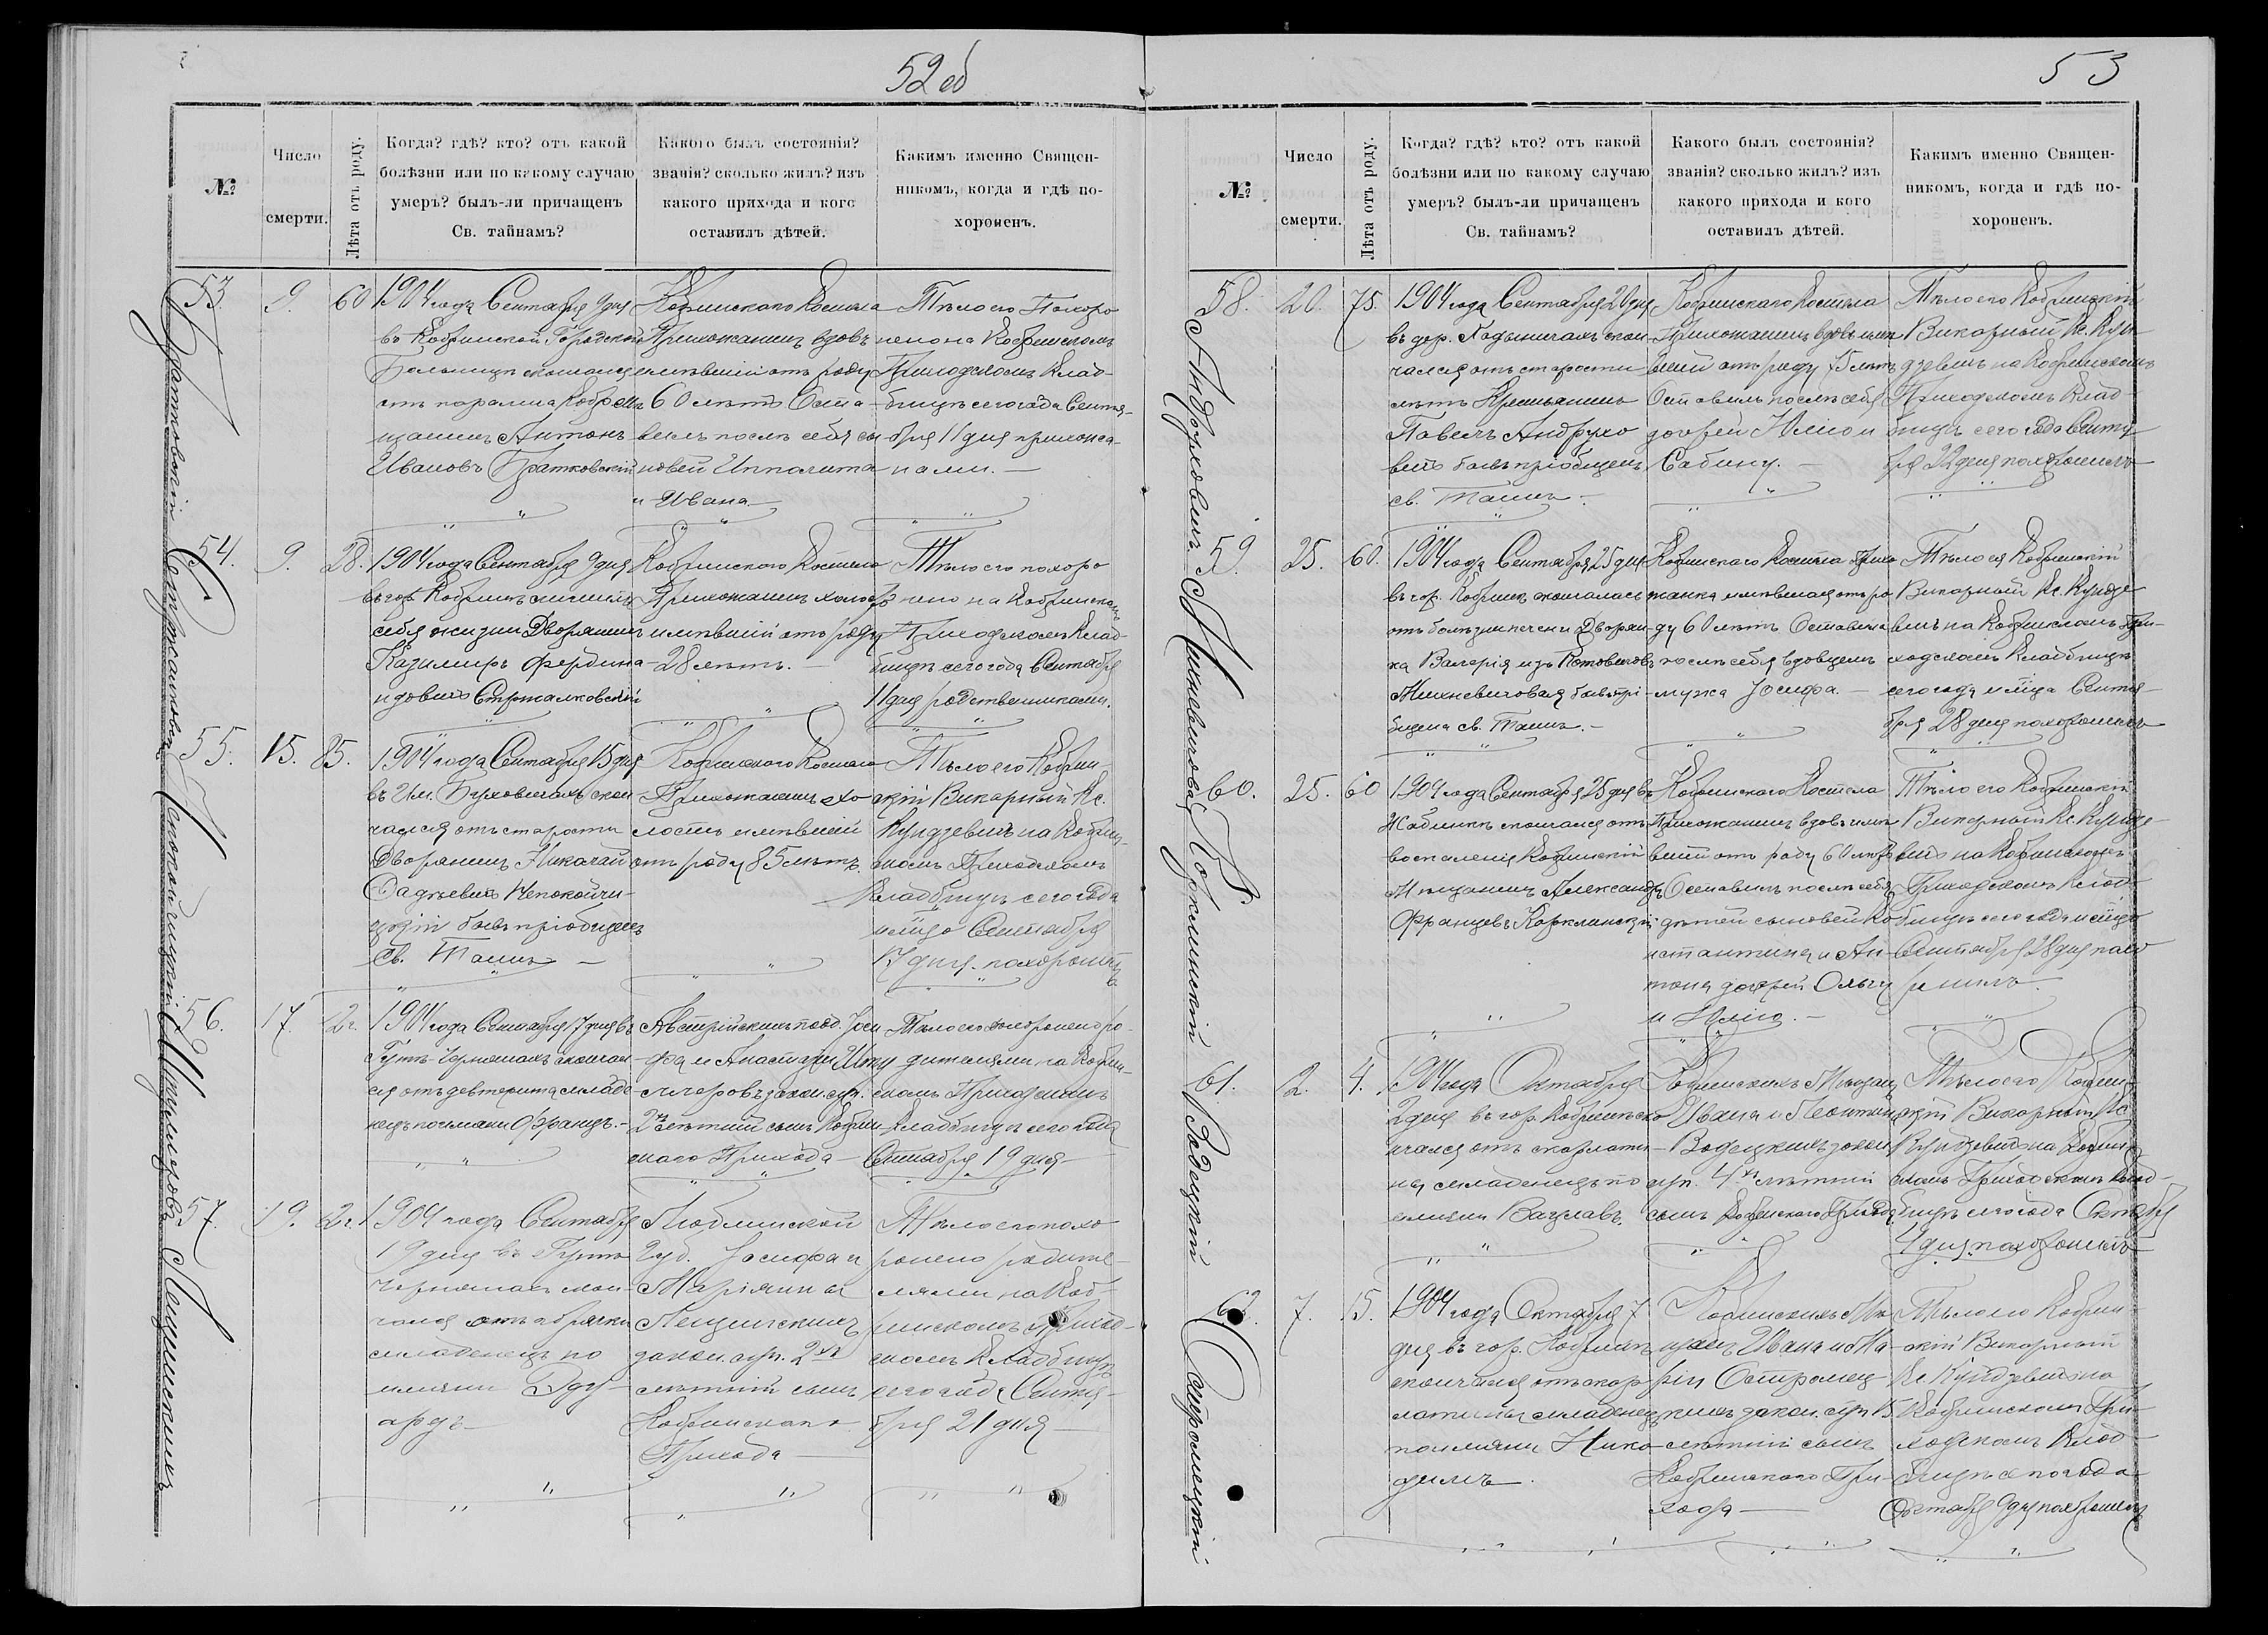 52 об
№
Число
смерти.
Лѣта отъ роду.
Когда? гдѣ? кто? отъ какой
болѣзни или по какому случаю
умеръ? былъ-ли причащенъ
Св. тайнамъ?
Какого былъ состоянія?
званія? сколько жилъ? изъ
какого прихода и кого
оставилъ дѣтей.
Какимъ именно Священ-
никомъ, когда и гдѣ по-
хороненъ.
Братковскій
53.
9.
60
1904 года Сентября 9 дня
въ Кобринской Городской
Больницѣ скончался
отъ паралича Кобр. Мѣ
щанинъ Антонъ
Ивановъ Братковскій
Кобринскаго Костела
Прихожанинъ вдовъ
имѣвшій отъ роду
60 лѣтъ Оста-
вилъ послѣ себя сы
новей Ипполита
и Ивана
Тѣло его Похоро
нено на Кобринскомъ
Приходскомъ Клад-
бищѣ сего года Сентя-
бря 11 дня прихожа-
нами. —
Стржалковскій
54.
9.
28.
1904 года Сентября 9 дня
въ гор. Кобринѣ лишилъ
себя жизни Дворянинъ
Казимиръ Фердина-
ндовъ Стржалковскій
Кобринскаго Костела
Прихожанинъ холостъ
имѣвшій отъ роду
28 лѣтъ. —
Тѣло его похоро
нено на Кобринскомъ
Приходскомъ Клад-
бищѣ сего года Сентября
11 дня родственниками.
Непокойчицкій
55.
15.
85.
1904 года Сентября 15 дня
въ Им. Буховичахъ скон
чался отъ старости
Дворянинъ Николай
Фадѣевичъ Непокойчи-
цкій былъ пріобщенъ
Св. Таинъ —
Кобринскаго Костела
Прихожанинъ хо
лостъ имѣвшій
отъ роду 85 лѣтъ.
Тѣло его Кобрин-
скій Викарный Кс.
Кундзевичъ на Кобрин-
скомъ Приходскомъ
Кладбищѣ сего года
м‑ца Сентября
17 дня похоронилъ
56.
17.
2г.
1904 года Сентября 17 дня въ
Гутѣ Чернянахъ скончал
ся отъ дифтерита младе
нецъ по имени Францъ. —
Австрійскихъ подд. Іоси
фа и Анастасіи
законн. суп.
2хъ лѣтній сынъ Кобрин
скаго Прихода —
Тѣло его похоронено ро-
дителями на Кобрин-
скомъ Приходскомъ
Кладбищѣ сего года
Сентября 19 дня —
Лещинскихъ
57.
19.
2г.
1904 года Сентября
19 дня въ Гутѣ
Чернянахъ скон-
чался
младенецъ по
имени Эду-
ардъ
Люблинской
Губ. Іосифа и
Маріянны
Лещинскихъ
закон. суп. 2хъ
лѣтній сынъ
Кобринскаго
Прихода —
Тѣло его похо
ронено родите-
лями на Коб-
ринскомъ Приход-
скомъ Кладбищѣ
сего года Сентя-
бря 21 дня —
53
№
Число
смерти.
Лѣта отъ роду.
Когда? гдѣ? кто? отъ какой
болѣзни или по какому случаю
умеръ? былъ-ли причащенъ
Св. тайнамъ?
Какого былъ состоянія?
званія? сколько жилъ? изъ
какого прихода и кого
оставилъ дѣтей.
Какимъ именно Священ-
никомъ, когда и гдѣ по-
хороненъ.
Андруховичъ
58.
20.
75.
1904 года Сентября 20 дня
въ дер. скон-
чался отъ старости
лѣтъ Крестьянинъ
Павелъ Андрухо
вичъ былъ пріобщенъ
св. Таинъ. —
Кобринскаго Костела
Прихожанинъ вдовъ имѣ
вшій отъ роду 75 лѣтъ
Оставилъ послѣ себя
дочерей Юлію и
Сабину. —
Тѣло его Кобринскій
Викарный Кс. Кун
дзевичъ на Кобринскомъ
Приходскомъ Клад-
бищѣ сего года Сентя
бря 22 дня похоронилъ
Михневичовая
59.
25.
60.
1904 года Сентября 25 дня
въ гор. Кобринѣ скончалась
отъ болѣзни печени Дворян-
ка Валерія изъ
Михневичовая была прі-
общена св. Таинъ. —
Кобринскаго Костела Прихо
жанка имѣвшая отъ ро
ду 60 лѣтъ Оставила
послѣ себя вдовцемъ
мужа Іосифа. —
Тѣло ея Кобринскій
Викарный Кс. Кундзе
вичъ на Кобринскомъ При-
ходскомъ Кладбищѣ
сего года и м‑ца Сентя-
бря 28 дня похоронилъ
Корклинскій
60.
25.
60
1904 года Сентября 25 дня въ
Жабинкѣ скончался отъ
воспаленія Кобринскій
Мѣщанинъ Александръ
Францевъ Корклинскій
Кобринскаго Костела
Прихожанинъ вдовъ имѣ
вшій отъ роду 60 лѣтъ
Оставилъ послѣ себя
дѣтей сыновей Ко
нстантина и Ан-
тона дочерей Ольгу
и Юлію. —
Тѣло его Кобринскій
Викарный Кс. Кундзе-
вичъ на Кобринскомъ
Приходскомъ Клад-
бищѣ сего года и м‑ца
Сентября 28 дня похо
ронилъ.
Водецкій
61.
2.
4.
1904 года Октября
2 дня въ гор. Кобринѣ ско
нчался отъ скарлати-
ны младенецъ по
имени Вацлавъ.
Кобринскихъ Мѣщан
Ивана и Леонтины
Водецкихъ закон
суп. 4хъ лѣтній
сынъ Кобринскаго Прихода
Тѣло его Кобрин-
скій Викарный Кс
Кундзевичъ на Кобрин
скомъ Приходскомъ Клад-
бищѣ сего года Октября
4 дня похоронилъ
Остромецкій
62.
7.
15.
1904 года Октября 7
дня въ гор. Кобринѣ
скончался отъ скар-
латины младенецъ
по имени Нико-
димъ.
Кобринскихъ Мѣ-
щанъ Ивана и Ма-
ріи Остромец-
кихъ закон. суп 15
лѣтній сынъ
Кобринскаго При-
хода —
Тѣло его Кобрин-
скій Викарный
Кс Кундзевичъ на
Кобринскомъ При-
ходскомъ Клад-
бищѣ сего года
Октября 9 дня похоронилъ